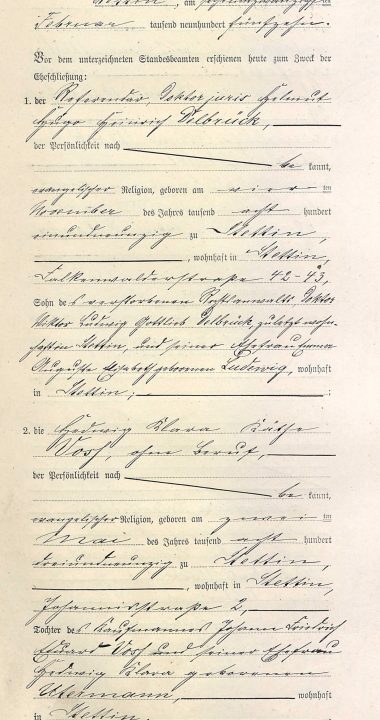 Stettin, am
Februar tausend neunhundert fünfzehn.
Vor dem unterzeichneten Standesbeamten erschienen heute zum Zweck der
Eheschließung:
1. der Referendar, Doktor juris Helmut
Hugo Heinrich Delbrück,
der Persönlichkeit nach
be kannt,
evangelischer Religion, geboren am vier ten
November des Jahres tausend acht hundert
einundneunzig zu Stettin,
, wohnhaft in Stettin,
Falkenwalderstraße 42-43,
Sohn des verstorbenen Doktor
Viktor Ludwig Gottlieb Delbrück, zuletzt wohn-
haft in Stettin, und seiner Ehefrau Emma
Auguste Elisabeth geborenen Ludewig, wohnhaft
in Stettin;
2. die Hedwig Klara Käthe
Voss, ohne Beruf,
der Persönlichkeit nach
be kannt,
evangelischer Religion, geboren am zwei ten
Mai des Jahres tausend acht hundert
dreiundneunzig zu Stettin,
, wohnhaft in Stettin,
Johannisstraße 2,
Tochter des Kaufmannes Johann Friedrich
Eduard Voss und seiner Ehefrau
Hedwig Klara geborenen
Utermann, wohnhaft
in Stettin.